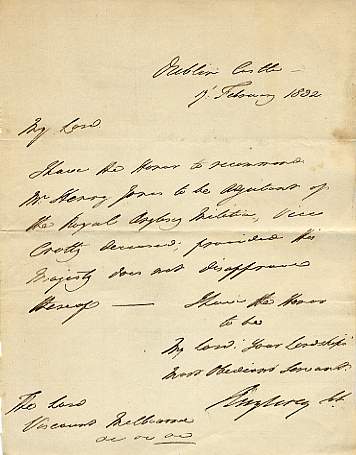 Dublin Castle –
7 February 1832
My Lord
I have the Honor to recommend
Mr Henry Jones to be Adjutant of
the Royal Anglesey Militia, Vice
Crotty deceased; provided His
Majesty does not disapprove
thereof — I have the Honor
to be
My Lord, Your Lordship's
Most Obedient Servant
Anglesey
The Lord
Viscount Melbourne
&c &c &c